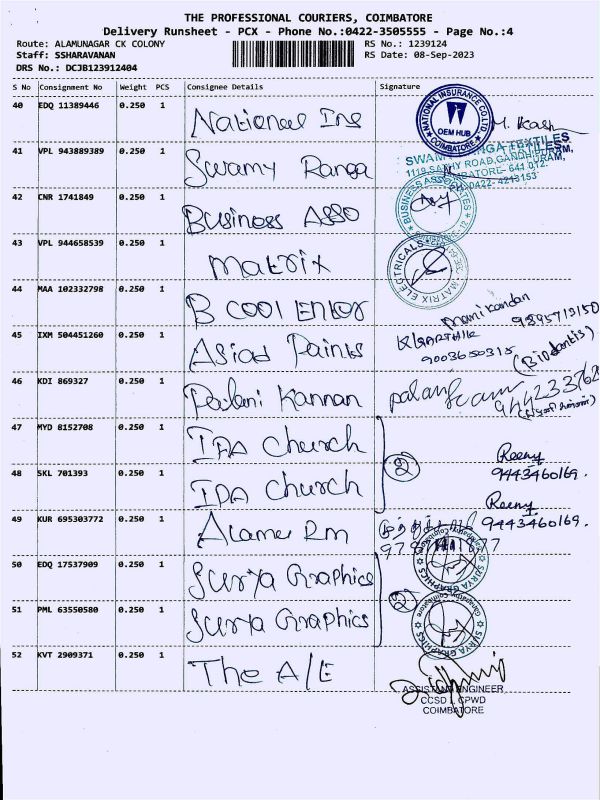 THE PROFESSIONAL COURIERS, COIMBATORE
Delivery Runsheet - PCX - Phone No.:0422-3505555 - Page No.:4
Route: ALAMUNAGAR CK COLONY
RS No.: 1239124
Staff: SSHARAVANAN
RS Date: 08-Sep-2023
DRS No.: DCJB123912404
S No Consignment No Weight PCS Consignee Details Signature
40 EDQ 11389446 0.250 1 National Ins
NATIONAL INSURANCE CO LTD
OEM HUB
COIMBATORE
M. Kash
41 VPL 943889389 0.250 1 Swamy Ranga
1119 SATHY ROAD, GANDHIPURAM,
42 CNR 1741849 0.250 1 Business Asso
BUSINESS ASSOCIATES
43 VPL 944658539 0.250 1 Matrix
MATRIX ELECTRICALS
44 MAA 102332798 0.250 1 B Cool Enter
Manikandan
45 IXM 504451260 0.250 1 Asian Paints
KARTHIK
9003650315
46 KDI 869327 0.250 1 Palani Kannan
47 MYD 8152708 0.250 1 IPA Church
Reeny
9443460169.
48 SKL 701393 0.250 1 IPA Church
2
Reeny
9443460169.
49 KUR 695303772 0.250 1 Alamu Rm
50 EDQ 17537909 0.250 1 Surya Graphics
SURYA GRAPHICS
51 PML 63550580 0.250 1 Surya Graphics
2
SURYA GRAPHICS
52 KVT 2909371 0.250 1 The A/E
ASSISTANT ENGINEER
CCSD I, CPWD
COIMBATORE